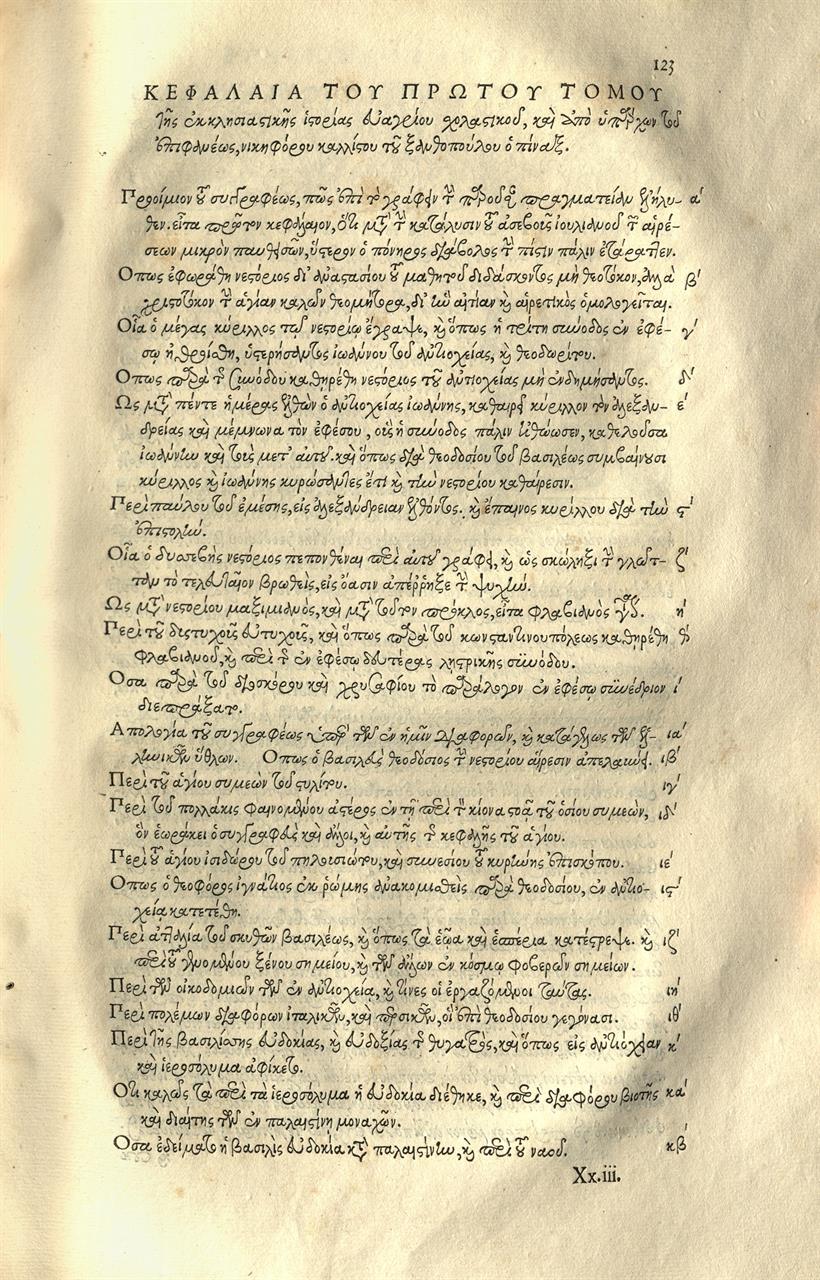 123
ΚΕΦΑΛΑΙΑ ΤΟΥ ΠΡΩΤΟΥ ΤΟΜΟΥ
τῆς ἐκκλησιαστικῆς ἱστορίας εὐαγρίου σχολαστικοῦ, καὶ ἀπὸ ὑπάρχων τοῦ
ἐπιφανέως, νικηφόρου καλλίστου τοῦ ξανθοπούλου ὁ πίναξ.
Προοίμιον τοῦ συγγραφέως, πῶς ἐπὶ τὸ γράφειν τὴν παροῦσαν πραγματείαν ἐλήλυ- α´
θεν. εἶτα πρῶτον κεφάλαιον, ὅτι μετὰ τὴν κατάλυσιν τοῦ ἀσεβοῦς ἰουλιανοῦ τῶν αἱρέ-
σεων μικρὸν παυθεισῶν, ὕστερον ὁ πόνηρος διάβολος τὴν πίστιν πάλιν ἐτάραττεν.
Οπως ἐφωράθη νεστόριος δι' ἀναστασίου τοῦ μαθητοῦ διδάσκοντος μὴ θεοτόκον, ἀλλὰ β´
χριστοτόκον τὴν ἁγίαν καλῶν θεομήτορα, δι' ἣν αἰτίαν καὶ αἱρετικὸς ὁμολογεῖται.
Οἷα ὁ μέγας κύριλλος τῷ νεστορίῳ ἔγραψε, καὶ ὅπως ἡ τρίτη σύνοδος ἐν ἐφέ- γ´
σῳ ἠθροίσθη, ὑστερήσαντος ἰωάννου τοῦ ἀντιοχείας, καὶ θεοδωρίτου.
Οπως παρὰ τῆς συνόδου καθῃρέθη νεστόριος τοῦ ἀντιοχείας μὴ ἐνδημήσαντος. δ´
Ως μετὰ πέντε ἡμέρας ἐλθὼν ὁ ἀντιοχείας ἰωάννης, καθαιρεῖ κύριλλον τὸν ἀλεξαν- ε´
δρείας καὶ μέμνωνα τὸν ἐφέσου, οὓς ἡ σύνοδος πάλιν ἠθώωσεν, καθελοῦσα
ἰωάννην καὶ τοὺς μετ' αὐτοῦ. καὶ ὅπως διὰ θεοδοσίου τοῦ βασιλέως συμβαίνουσι
κύριλλος καὶ ἰωάννης κυρώσαντες ἔτι καὶ τὴν νεστορίου καθαίρεσιν.
Περὶ παύλου τοῦ ἐμέσης, εἰς ἀλεξάνδρειαν ἐλθόντος. καὶ ἔπαινος κυρίλλου διὰ τὴν ϛ´
ἐπιστολήν.
Οἷα ὁ δυσσεβὴς νεστόριος πεπονθέναι περὶ αὐτοῦ γράφει, καὶ ὡς σκώληξι τὴν γλῶτ- ζ´
ταν τὸ τελευταῖον βρωθεὶς, εἰς ὄασιν ἀπέῤῥηξε τὴν ψυχήν.
Ως μετὰ νεστορίου μαξιμιανὸς, καὶ μετὰ τοῦτον πρόκλος, εἶτα φλαβιανὸς γέγονε. η´
Περὶ τοῦ δυστυχοῦς εὐτυχοῦς, καὶ ὅπως παρὰ τοῦ κωνσταντινουπόλεως καθῃρέθη θ´
φλαβιανοῦ, καὶ περὶ τῆς ἐν ἐφέσῳ δευτέρας λῃστρικῆς συνόδου.
Οσα παρὰ τοῦ διοσκόρου καὶ χρυσαφίου τὸ παράλογον ἐν ἐφέσῳ συνέδριον ι´
διεπράξατο.
Απολογία τοῦ συγγραφέως ὑπὲρ τῶν ἐν ἡμῖν διαφορῶν, καὶ κατάγελως τῶν ἑλ- ια´
ληνικῶν ὕθλων. Οπως ὁ βασιλεὺς θεοδόσιος τὴν νεστορίου αἵρεσιν ἀπελαύνει. ιβ´
Περὶ τοῦ ἁγίου συμεὼν τοῦ στυλίτου. ιγ´
Περὶ τοῦ πολλάκις φαινομένου ἀστέρος ἐν τῇ περὶ τὴν κίονα στοᾷ τοῦ ὁσίου συμεὼν, ιδ´
ὃν ἑωράκει ὁ συγγραφεὺς καὶ ἄλλοι, καὶ αὐτῆς τῆς κεφαλῆς τοῦ ἁγίου.
Περὶ τοῦ ἁγίου ἰσιδώρου τοῦ πηλουσιώτου, καὶ συνεσίου τοῦ κυρήνης ἐπισκόπου. ιε´
Οπως ὁ θεοφόρος ἰγνάτιος ἐκ ῥώμης ἀνακομισθεὶς παρὰ θεοδοσίου, ἐν ἀντιο- ιϛ´
χείᾳ κατετέθη.
Περὶ ἀττήλα τοῦ σκυθῶν βασιλέως, καὶ ὅπως τὰ ἑῷα καὶ ἑσπέρια κατέστρεψε. καὶ ιζ´
περὶ τοῦ γενομένου ξένου σημείου, καὶ τῶν ἄλλων ἐν κόσμῳ φοβερῶν σημείων.
Περὶ τῶν οἰκοδομιῶν τῶν ἐν ἀντιοχείᾳ, καὶ τίνες οἱ ἐργαζόμενοι ταύτας. ιη´
Περὶ πολέμων διαφόρων ἰταλικῶν, καὶ περσικῶν, οἳ ἐπὶ θεοδοσίου γεγόνασι. ιθ´
Περὶ τῆς βασιλίσσης εὐδοκίας, καὶ εὐδοξίας τῆς θυγατρὸς, καὶ ὅπως εἰς ἀντιόχειαν κ´
καὶ ἱεροσόλυμα ἀφίκετο.
Οτι καλῶς τὰ περὶ τὰ ἱεροσόλυμα ἡ εὐδοκία διέθηκε, καὶ περὶ διαφόρου βιοτῆς κα´
καὶ διαίτης τῶν ἐν παλαιστίνῃ μοναχῶν.
Οσα ἐδείματο ἡ βασιλὶς εὐδοκία κατὰ παλαιστίνην, καὶ περὶ τοῦ ναοῦ. κβ´
Xx.iii.